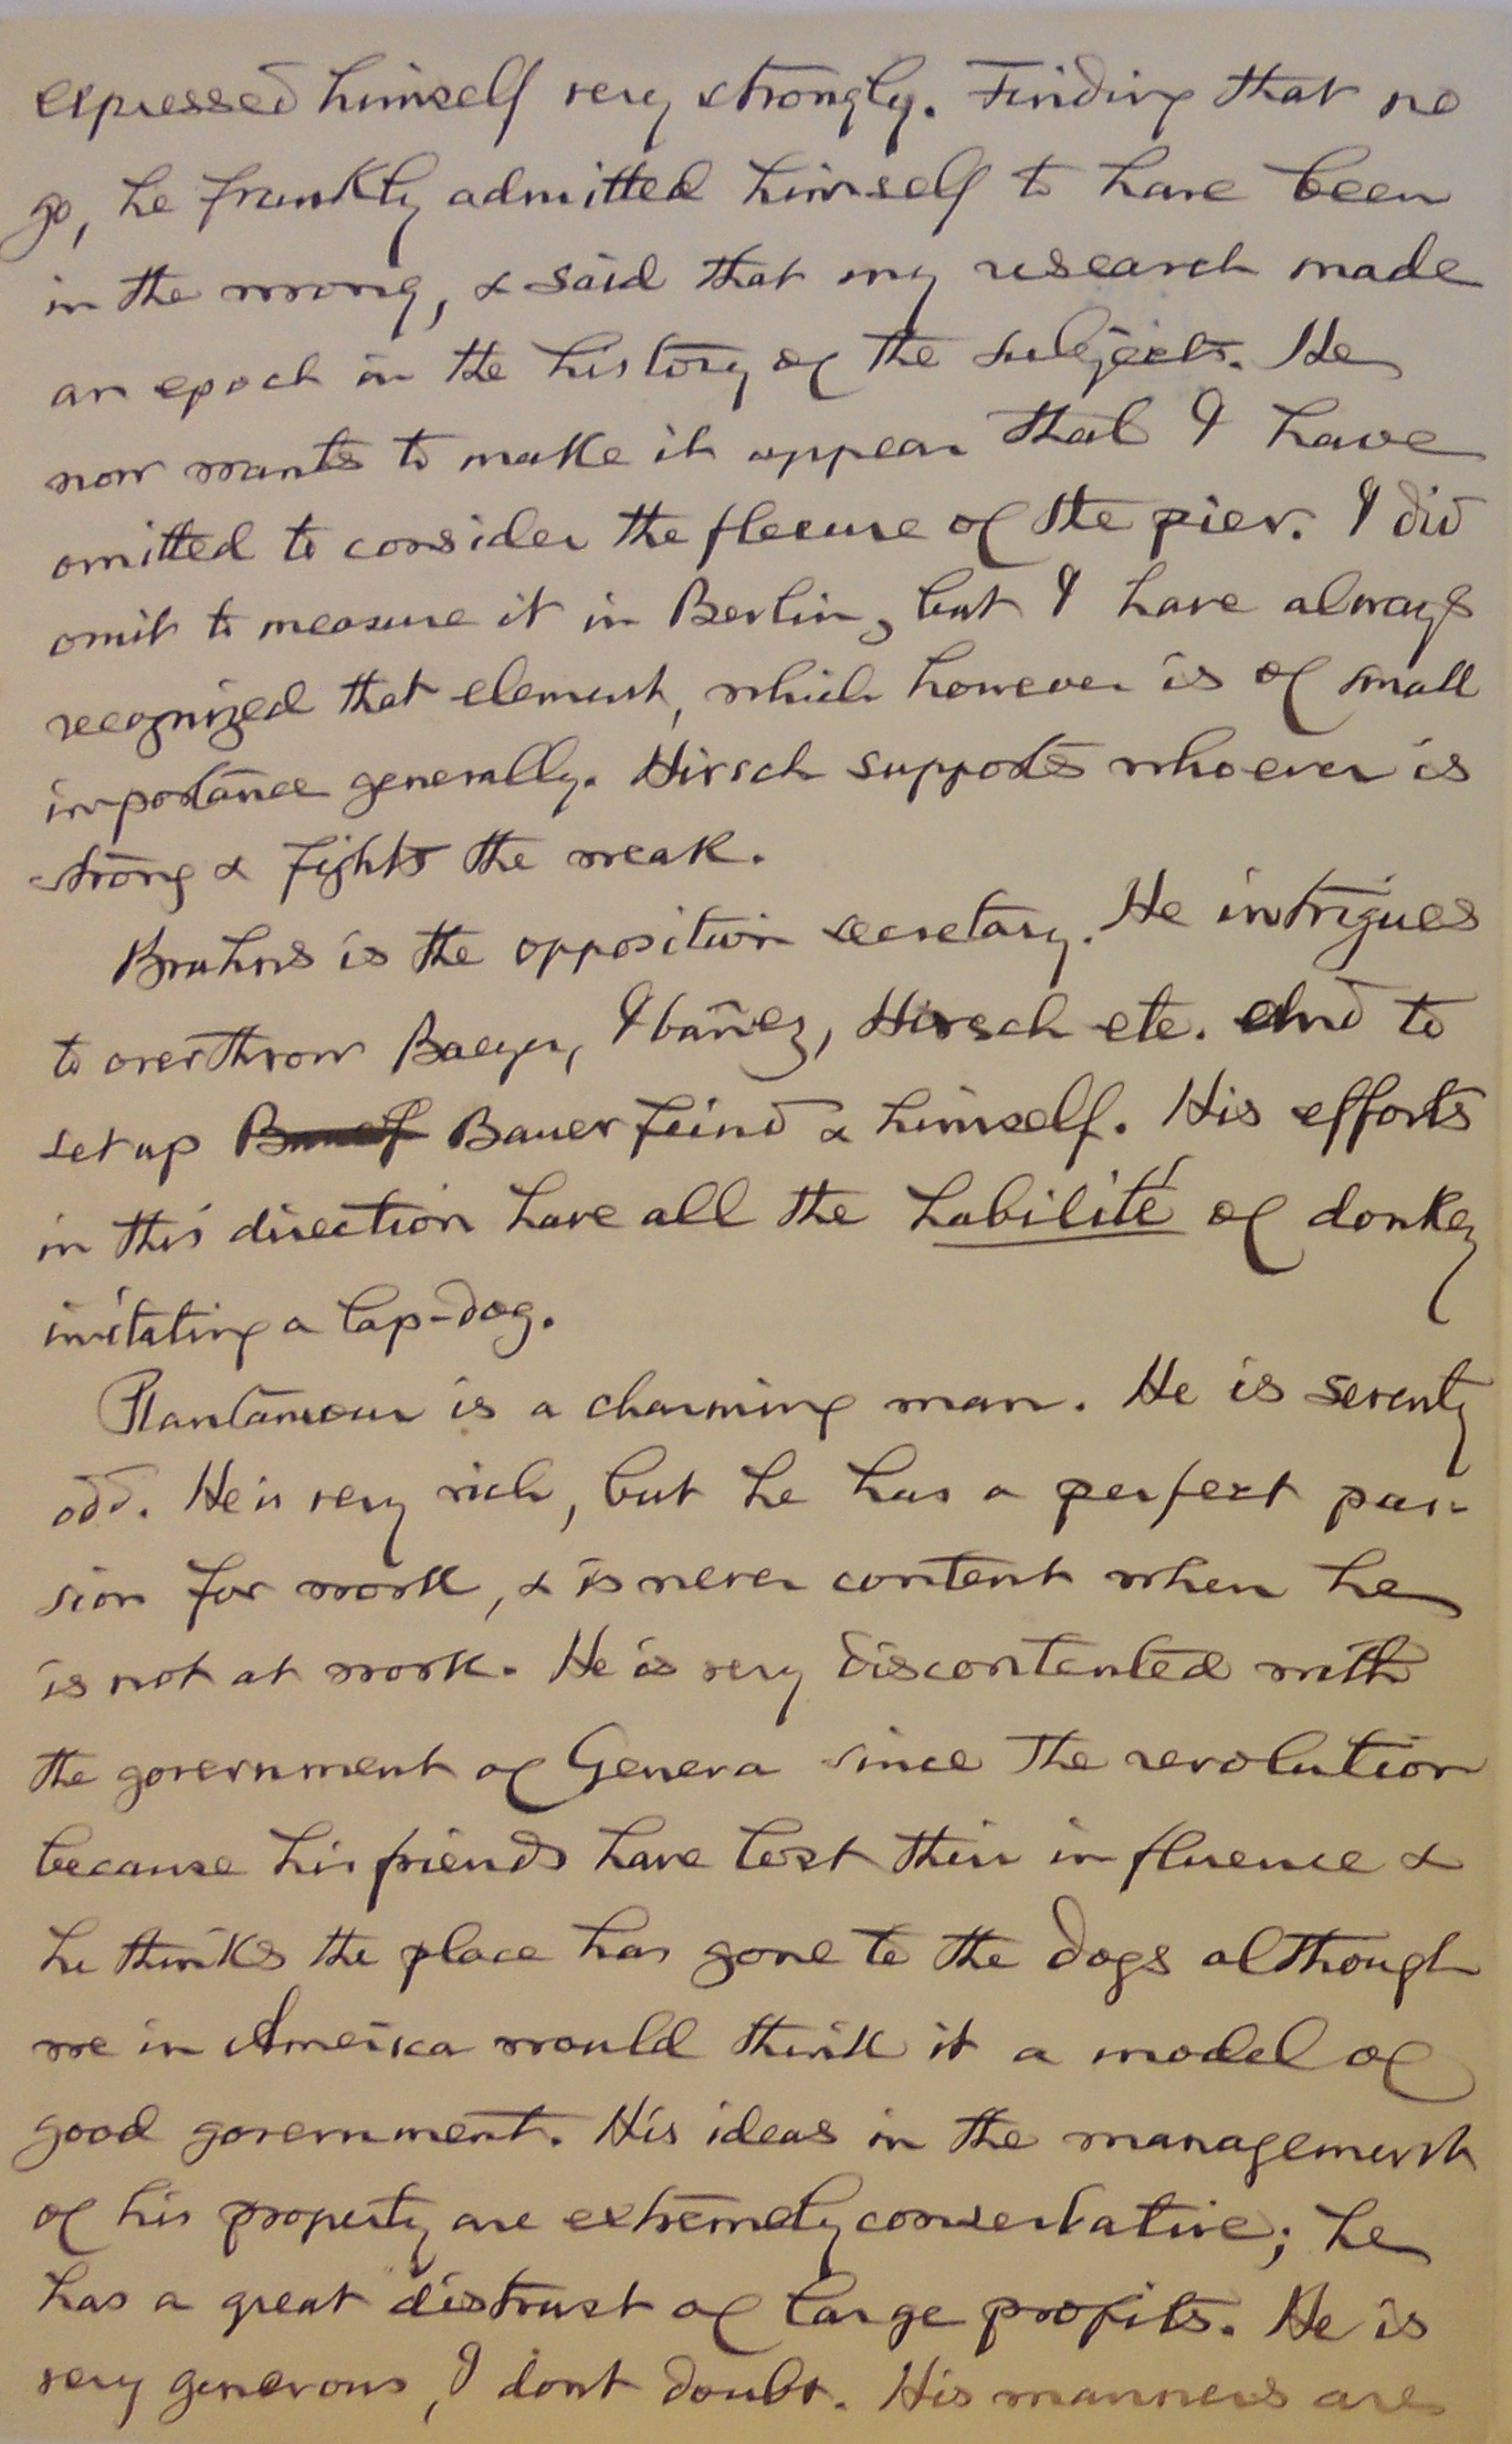 expressed himself very strongly. Finding that no
go, he frankly admitted himself to have been
in the wrong, & said that my research made
an epoch in the history of the subject. He
now wants to make it appear that I have
omitted to consider the flexure of the pier. I did
omit to measure it in Berlin, but I have always
recognized that element, which however is of small
importance generally. Hirsch supports whoever is
strong & fights the weak.
Bruhns is the opposition secretary. He intrigues
to overthrow Baeyer, Ibañez, Hirsch etc. and to
set up Bauerfeind & himself. His efforts
in this direction have all the habilité of donkey
imitating a lap-dog.
Plantamour is a charming man. He is seventy
odd. He is very rich, but he has a perfect pas-
sion for work, & is never content when he
is not at work. He is very discontented with
the government of Geneva since the revolution
because his friends have lost their influence &
he thinks the place has gone to the dogs although
we in America would think it a model of
good government. His ideas in the management
of his property are extremely conservative; he
has a great distrust of large profits. He is
very generous, I dont doubt. His manners are